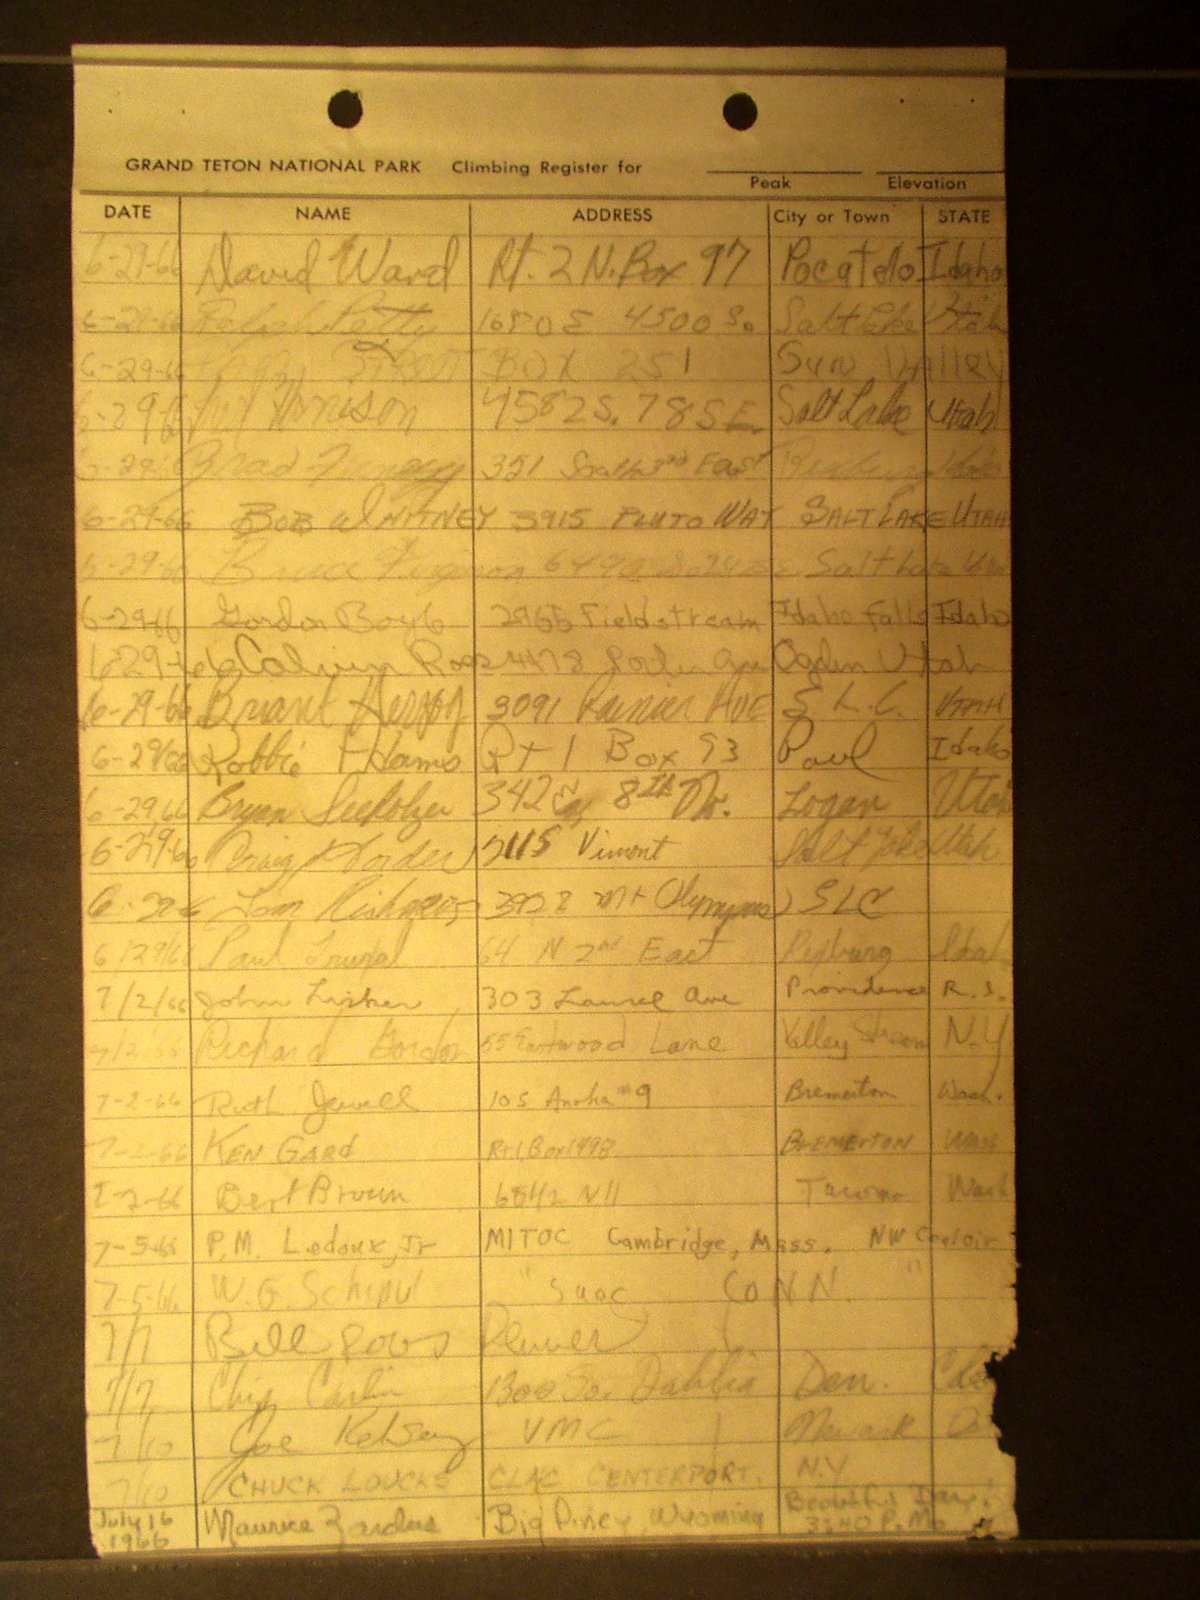 GRAND TETON NATIONAL PARK Climbing Register for
Peak Elevation
DATE NAME ADDRESS City or Town STATE
6-29-66 David Ward Rt. 2 N. Box 97 Pocatello Idaho
6-29-66 Ralph Petty 1680 E 4500 So. Salt Lake Utah
6-29-66 Street Box 251 Sun Valley
6-29-66 Harrison 4582 S. 785 E. Salt Lake Utah
6-29-66 Brad 351 South 3rd East Idaho
6-29-66 BOB WHITNEY 3915 PLUTO WAY SALT LAKE UTAH
6-29-66 Bruce Salt Lake Utah
6-29-66 Gordon Boyle 2965 Fieldstream Idaho Falls Idaho
6-29-66 Calvin Ogden Utah
6-29-66 Bryant Herzog 3091 Rainier AVE S L.C. UTAH
6-29-66 Robbie F Hams Rt 1 Box 93 Paul Idaho
6-29-66 Bryan 342 8th No. Logan Utah
6-29-66 Craig 2115 Vimont Salt Lake Utah
6-29-66 Tom Mt Olympus SLC
6/29/66 Paul 64 N 2nd East Rexburg Idah
7/2/66 John 303 Laurel Ave Providence R.I.
7/2/66 Richard Gordon 55 Eastwood Lane Valley Stream N.Y
7-2-66 Ruth Jewell 105 Anoka #9 Bremerton Wash.
7-2-66 KEN GARD Rt 1, Box 1498 BREMERTON WASH
7-2-66 Bert Brown N 11 Tacoma Wash
7-5-66 P.M. Ledoux, Jr MITOC Cambridge, Mass. NW Couloir
7-5-66 W. G. Schipul " CONN. "
7/7 Bill Denver
7/7 Chip Carlin 1300 So. Dahlia Den. Colo
7/10 Joe Kelsey VMC Newark
7/10 CHUCK LOUCKS CENTERPORT. N.Y
July 16 1966 Maurice Big Piney, Wyoming Beautiful Day!
3:40 P.M.